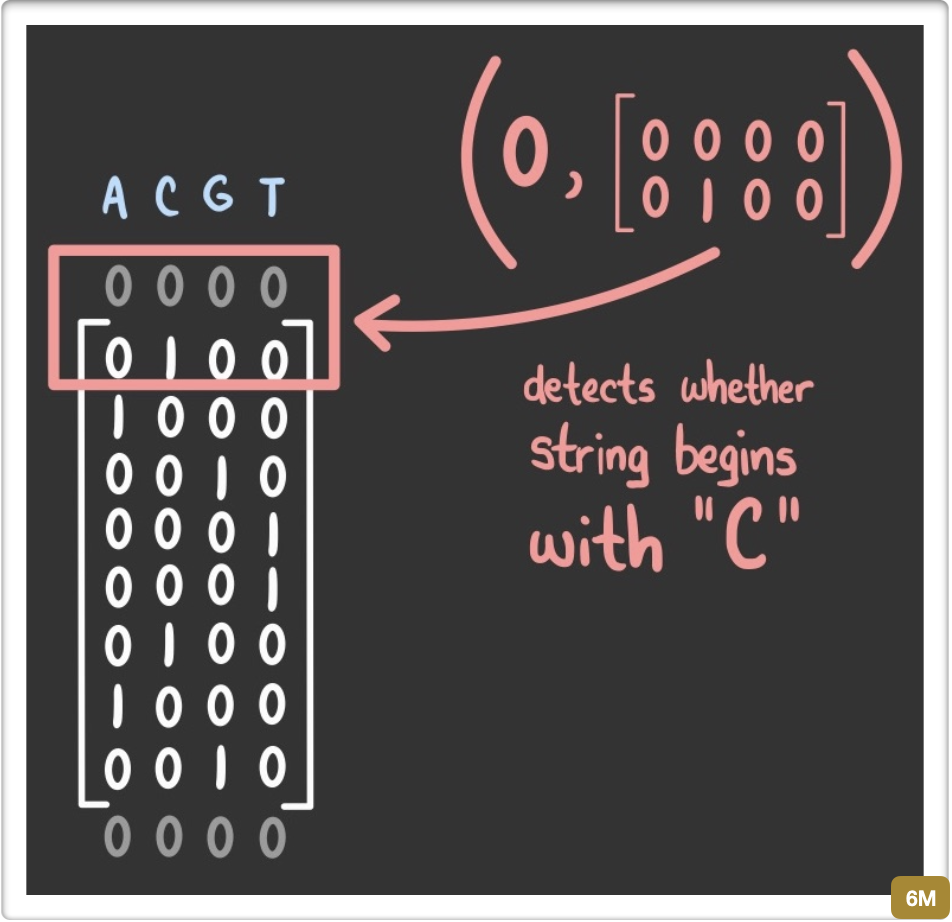 (0, [0 0 0 0
0 1 0 0])
A C G T
0 0 0 0
0 1 0 0
1 0 0 0
0 0 1 0
0 0 0 1
0 0 0 1
0 1 0 0
1 0 0 0
0 0 1 0
0 0 0 0
detects whether
string begins
with "C"
6M